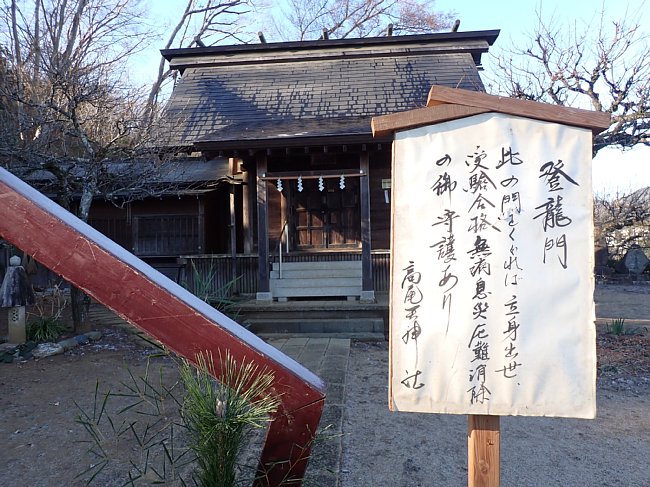 登龍門
此の門くぐれば立身出世
受験合格無病息災厄難消除
の御守護あり
高尾神社